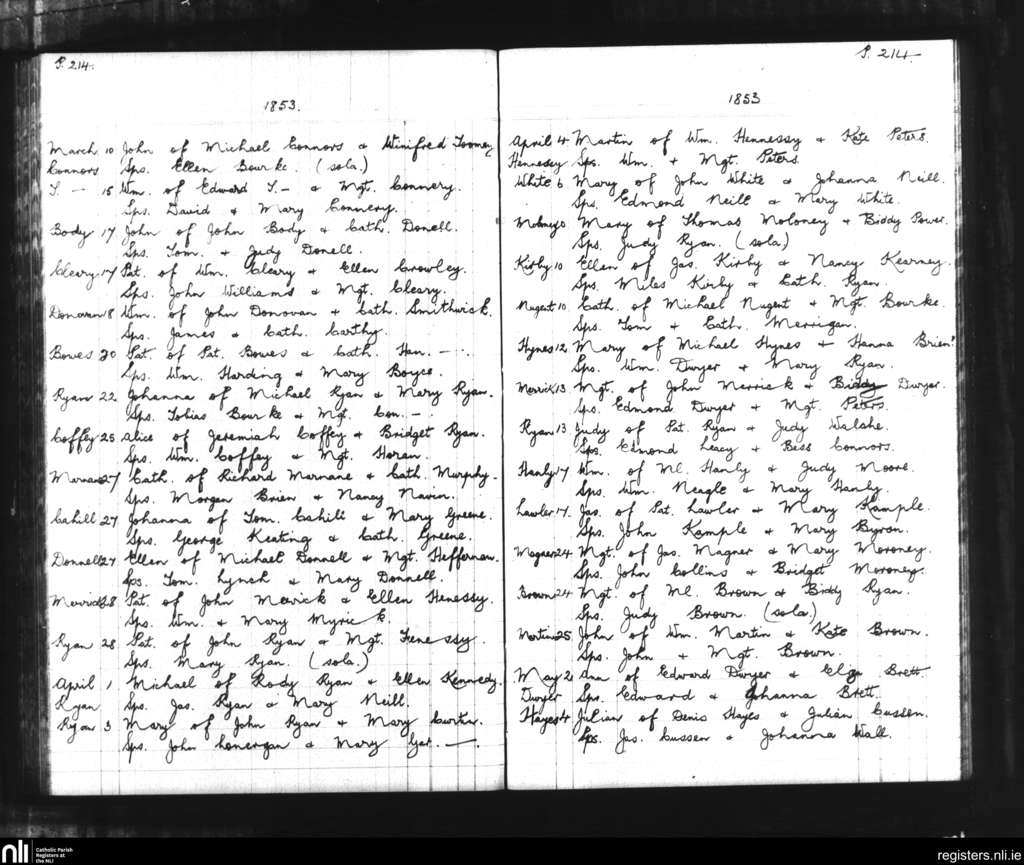 P. 214.
1853.
March 10 John of Michael Connors & Winifred Toomey
Connors Sps. Ellen Bourke. (sola.)
T — 15 Wm. of Edward T. — & Mgt. Connery.
Sps. David & Mary Connery.
Body 17 John of John Body & Cath. Donell.
Sps. Tom. & Judy Donell.
Cleary 17 Pat. of Wm. Cleary & Ellen Crowley.
Sps. John Williams & Mgt. Cleary.
Donovan 18 Wm. of John Donovan & Cath. Smithwick.
Sps. James & Cath. Carthy.
Bowes 20 Pat. of Pat. Bowes & Cath. Han. — .
Sps. Wm. Harding & Mary Boyce.
Ryan 22 Johanna of Michael Ryan & Mary Ryan.
Sps. Tobias Bourke & Mgt. Con. —
Coffey 25 Alice of Jeremiah Coffey & Bridget Ryan.
Sps. Wm. Coffey & Mgt. Horan.
Marnane 27 Cath. of Richard Marnane & Cath. Murphy.
Sps. Morgan Brien & Nancy Navin.
Cahill 27 Johanna of Tom. Cahill & Mary Greene.
Sps. George Keating & Cath. Greene.
Donnell 27 Ellen of Michael Donnell & Mgt. Heffernan.
Sps. Tom. Lynch & Mary Donnell.
Merrick 28 Pat. of John Merrick & Ellen Henessy.
Sps. Wm. & Mary Myrick.
Ryan 28 Pat. of John Ryan & Mgt. Fenessy.
Sps. Mary Ryan. (sola.)
April 1 Michael of Rody Ryan & Ellen Kennedy.
Ryan Sps. Jas. Ryan & Mary Neill.
Ryan 3 Mary of John Ryan & Mary Curtin.
Sps. John Lonergan & Mary —.
P. 214
1853
April 4 Martin of Wm. Hennessy & Kate Peters.
Hennessy Sps. Wm. & Mgt. Peters
White 6 Mary of John White & Johanna Neill.
Sps. Edmond Neill & Mary White.
Moloney 10 Mary of Thomas Moloney & Biddy Power.
Sps. Judy Ryan. (sola)
Kirby 10 Ellen of Jas. Kirby & Nancy Kearney.
Sps. Miles Kirby & Cath. Ryan.
Nugent 10 Cath. of Michael Nugent & Mgt. Bourke.
Sps. Tom & Cath. Merrigan.
Hynes 12 Mary of Michael Hynes & Hanna Brien?
Sps. Wm. Dwyer & Mary Ryan.
Merrick 13 Mgt. of John Merrick & Biddy Dwyer.
Sps. Edmond Dwyer & Mgt. Peters.
Ryan 13 Judy of Pat. Ryan & Judy Walshe.
Sps. Edmond Leacy & Bess Connors.
Hanly 17 Wm. of Ml. Hanly & Judy Moore.
Sps. Wm. Neagle & Mary Hanly.
Lawler 17. Jas. of Pat. Lawler & Mary Kample.
Sps. John Kample & Mary Byron.
Magner 24 Mgt. of Jas. Magner & Mary Moroney.
Sps. John Collins & Bridget Moroney.
Brown 24 Mgt. of Ml. Brown & Biddy Ryan.
Sps. Judy Brown. (sola)
Martin 25 John of Wm. Martin & Kate Brown.
Sps. John & Mgt. Brown.
May 2 Ann of Edward Dwyer & Eliza Brett
Dwyer Sps. Edward & Johanna Brett.
Hayes 4 Julian of Denis Hayes & Julian Cussen.
Sps. Jas. Cussen & Johanna Wall.
nli
Catholic Parish
Registers at
the NLI
registers.nli.ie